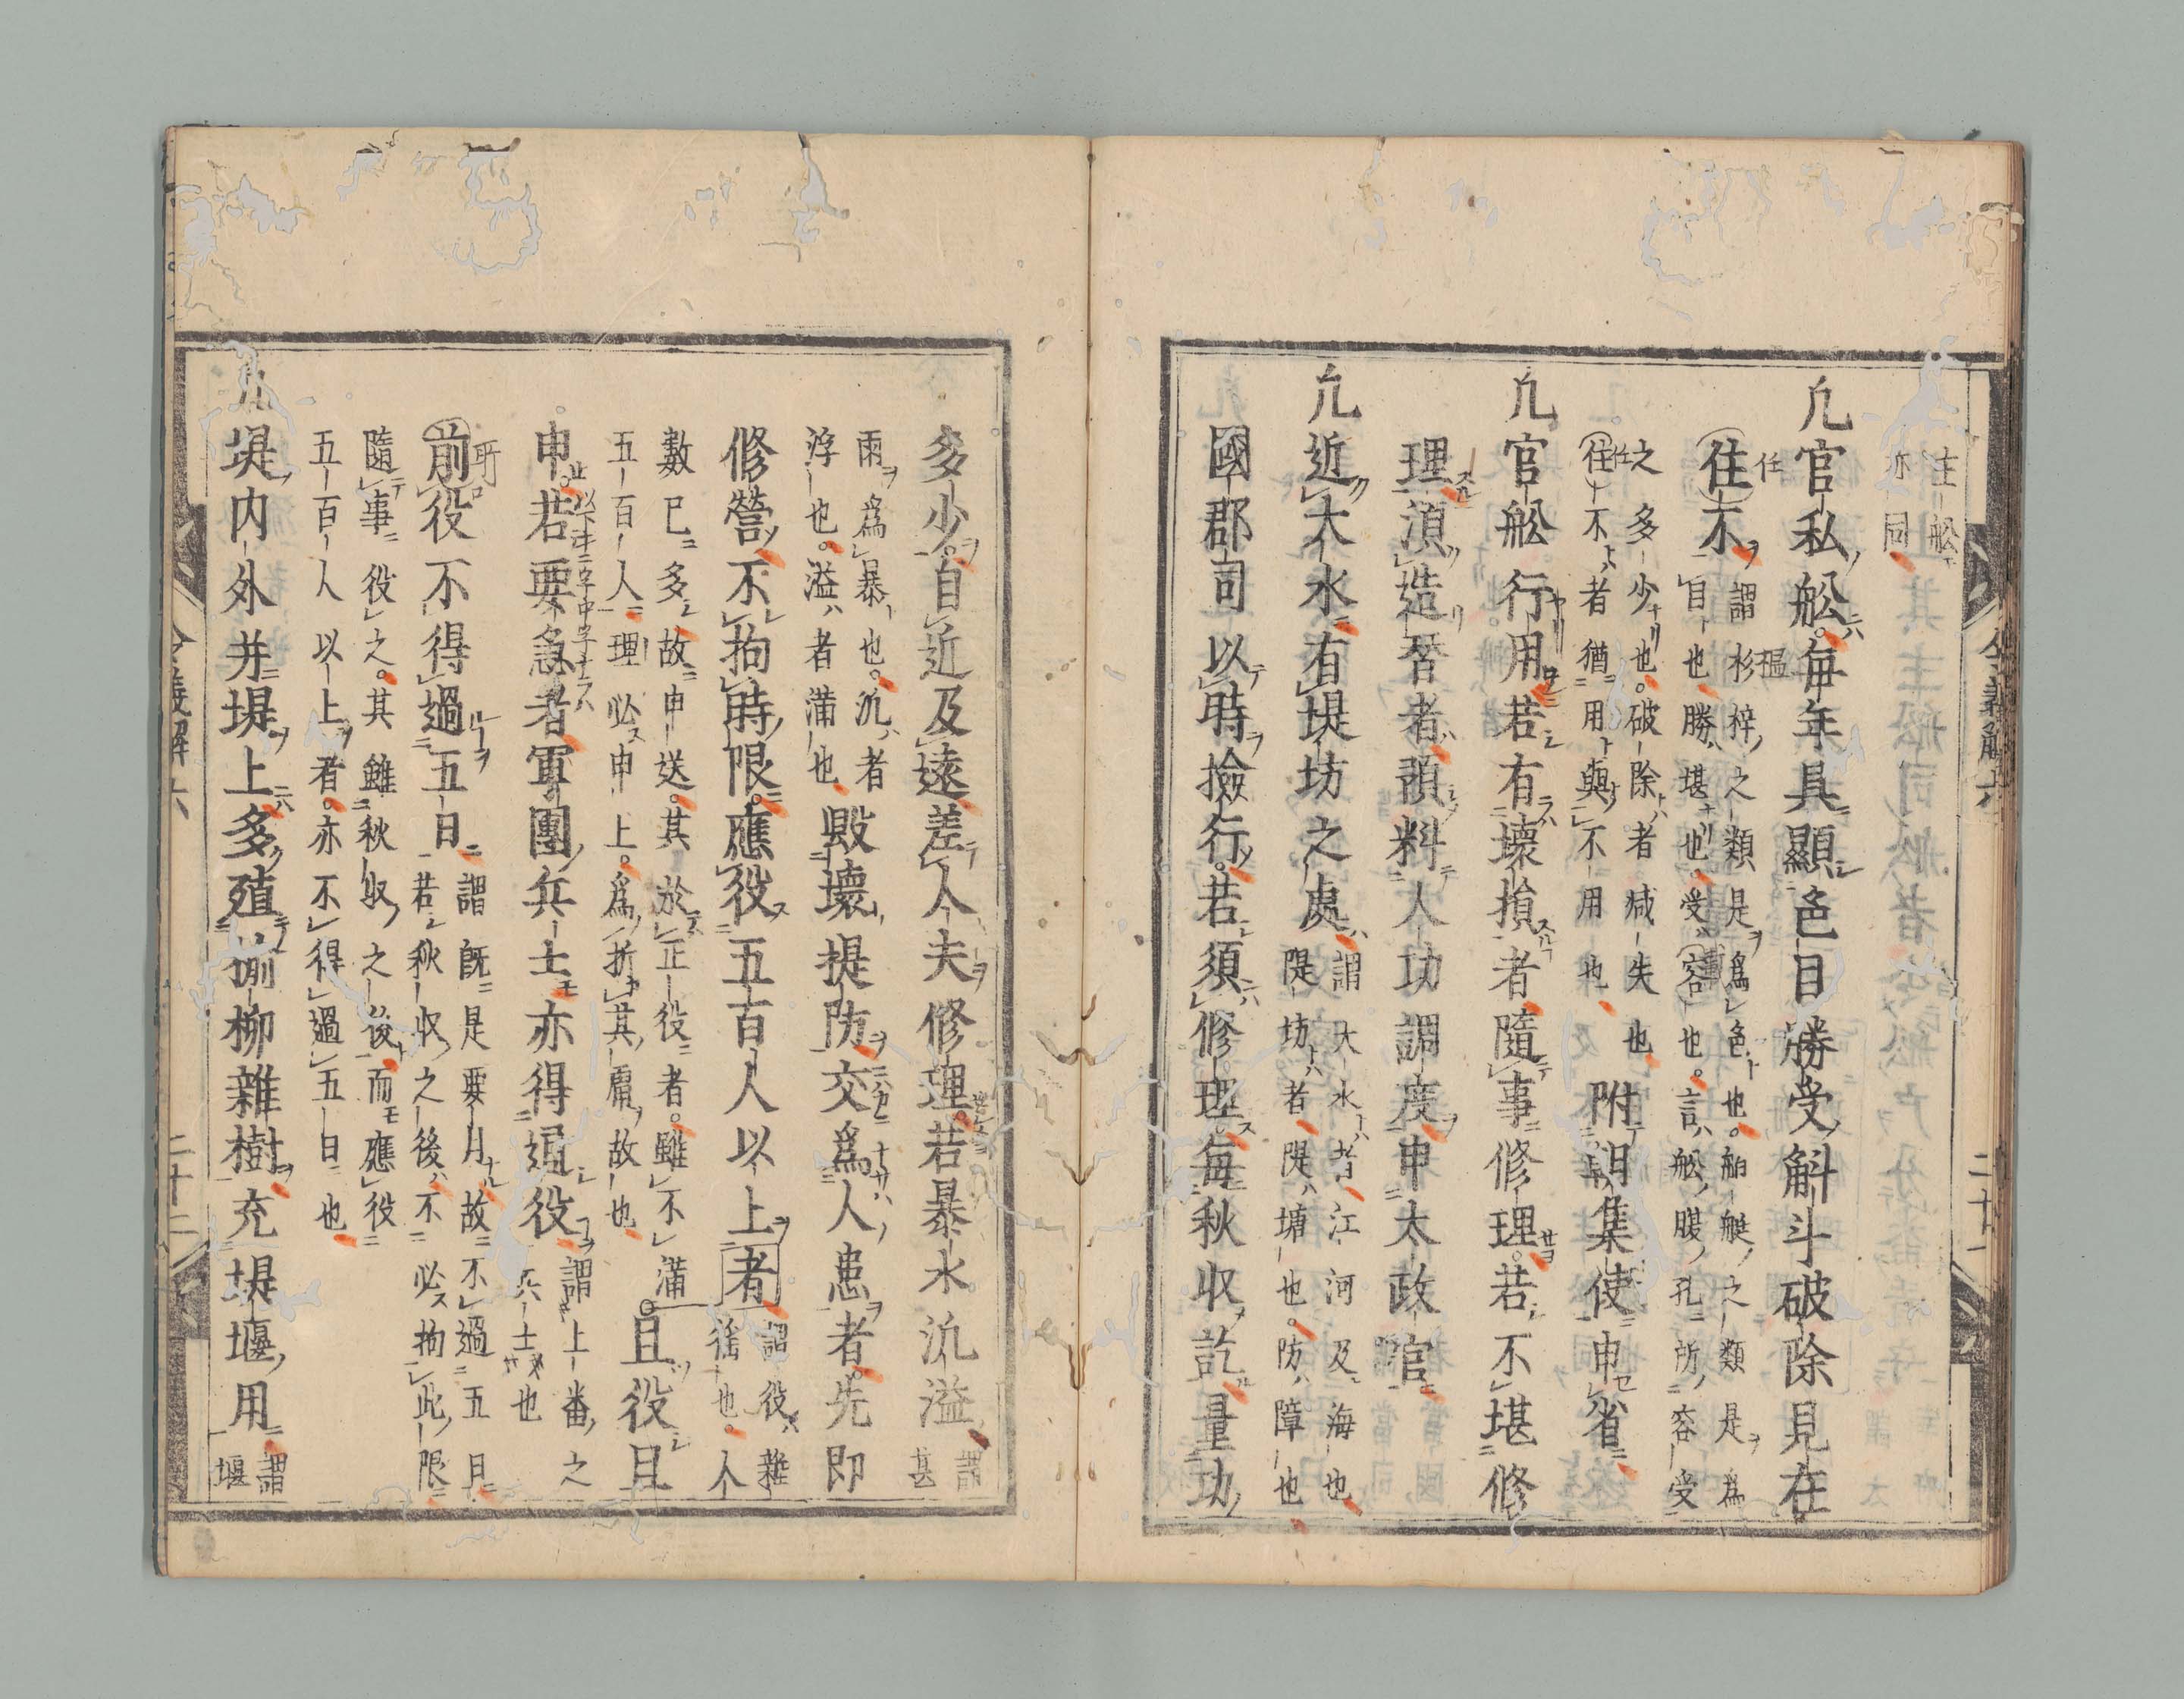 主船
亦同
凢官私舩毎年具顯色目勝受斛斗破除見在
往不
謂杉梓之類是爲色也舶艇之類是爲
目也勝堪也受容也言舩腹孔所容受
之多少也破除者减失也
往不者猶用與不用也
附朝集使申省
凢官舩行用若有壞損者隨事修理若不堪修
理湏造替者預料人功調度申太政官
凢近大水有堤坊之處
謂大水者江河及海也
隄坊者隄塘也防障也
國郡司以時撿行若須修理毎秋収訖量功
多少自近及遠差人夫修理若暴水汎溢
謂
甚
雨爲暴也汎者
浮也溢者満也
毀壞堤防交爲人患者先即
修營不拘時限應役五百人以上者
謂役雜
徭也人
數已多故申送其於正役者雖不満
五百人理必申上爲折其庸故也
且役且
申若要急者軍團兵士亦得逓役
謂上番之
兵士也
所
前役不得過五日
謂既是要月故不過五日
若秋収之後不必拘此限
隨事役之其雖秋収之後而應役
五百人以上者亦不得過五日也
堤内外并堤上多殖楡柳雜樹充堤堰用
謂
堰
令義解六
二十一
令義解六
二十二